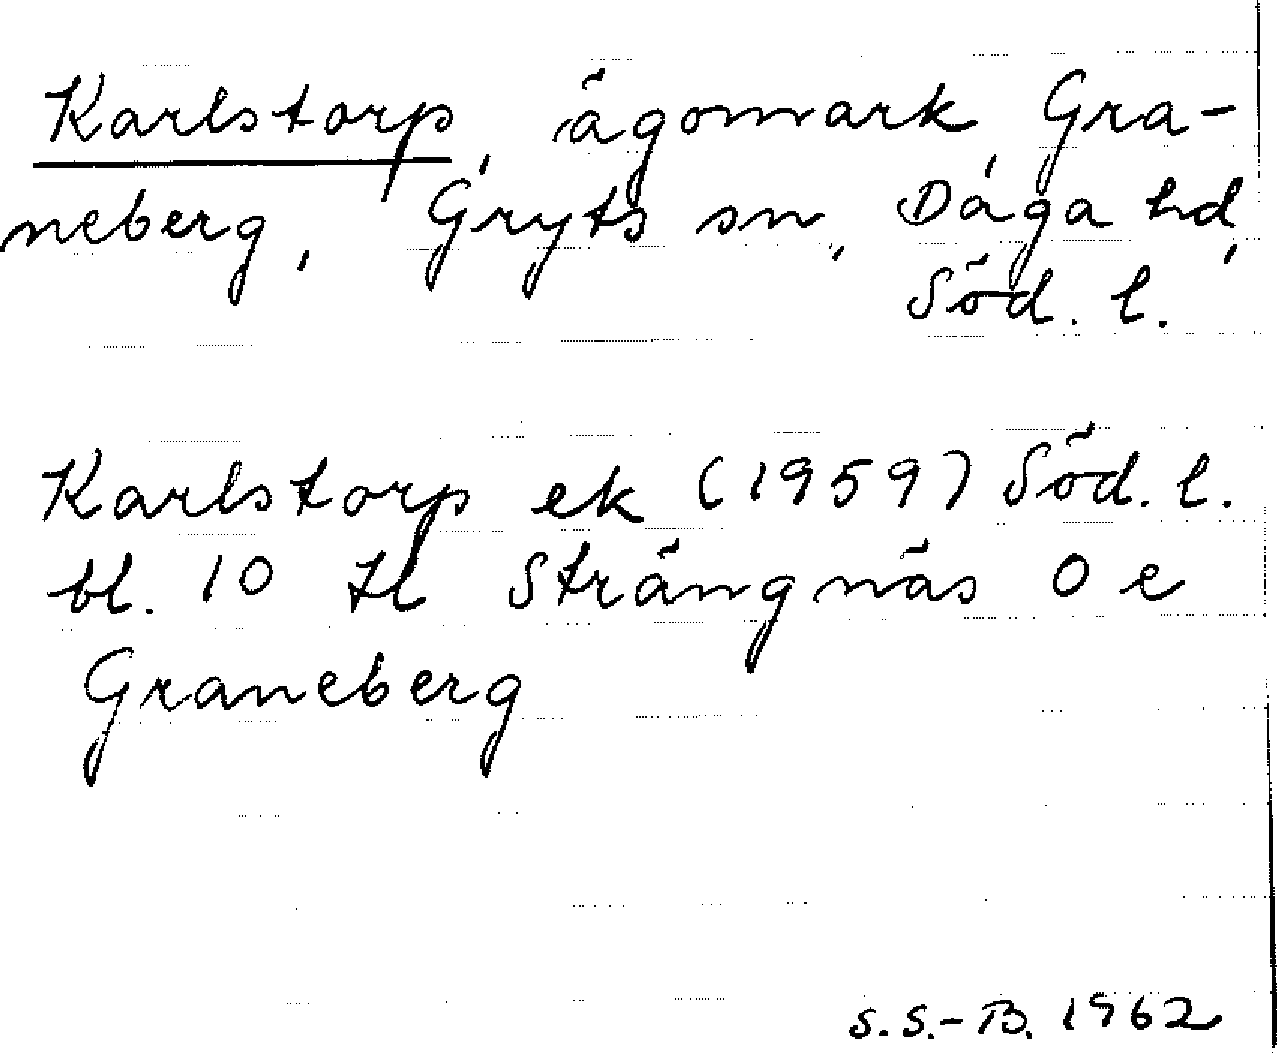 Karlstorp, ägomark, Gra-
neberg, Gryts sn, Dåga hd,
Söd. l.
Karlstorp ek (1959) Söd. l.
bl. 10 tl Strängnäs O e
Graneberg
S.S.-B. 1962